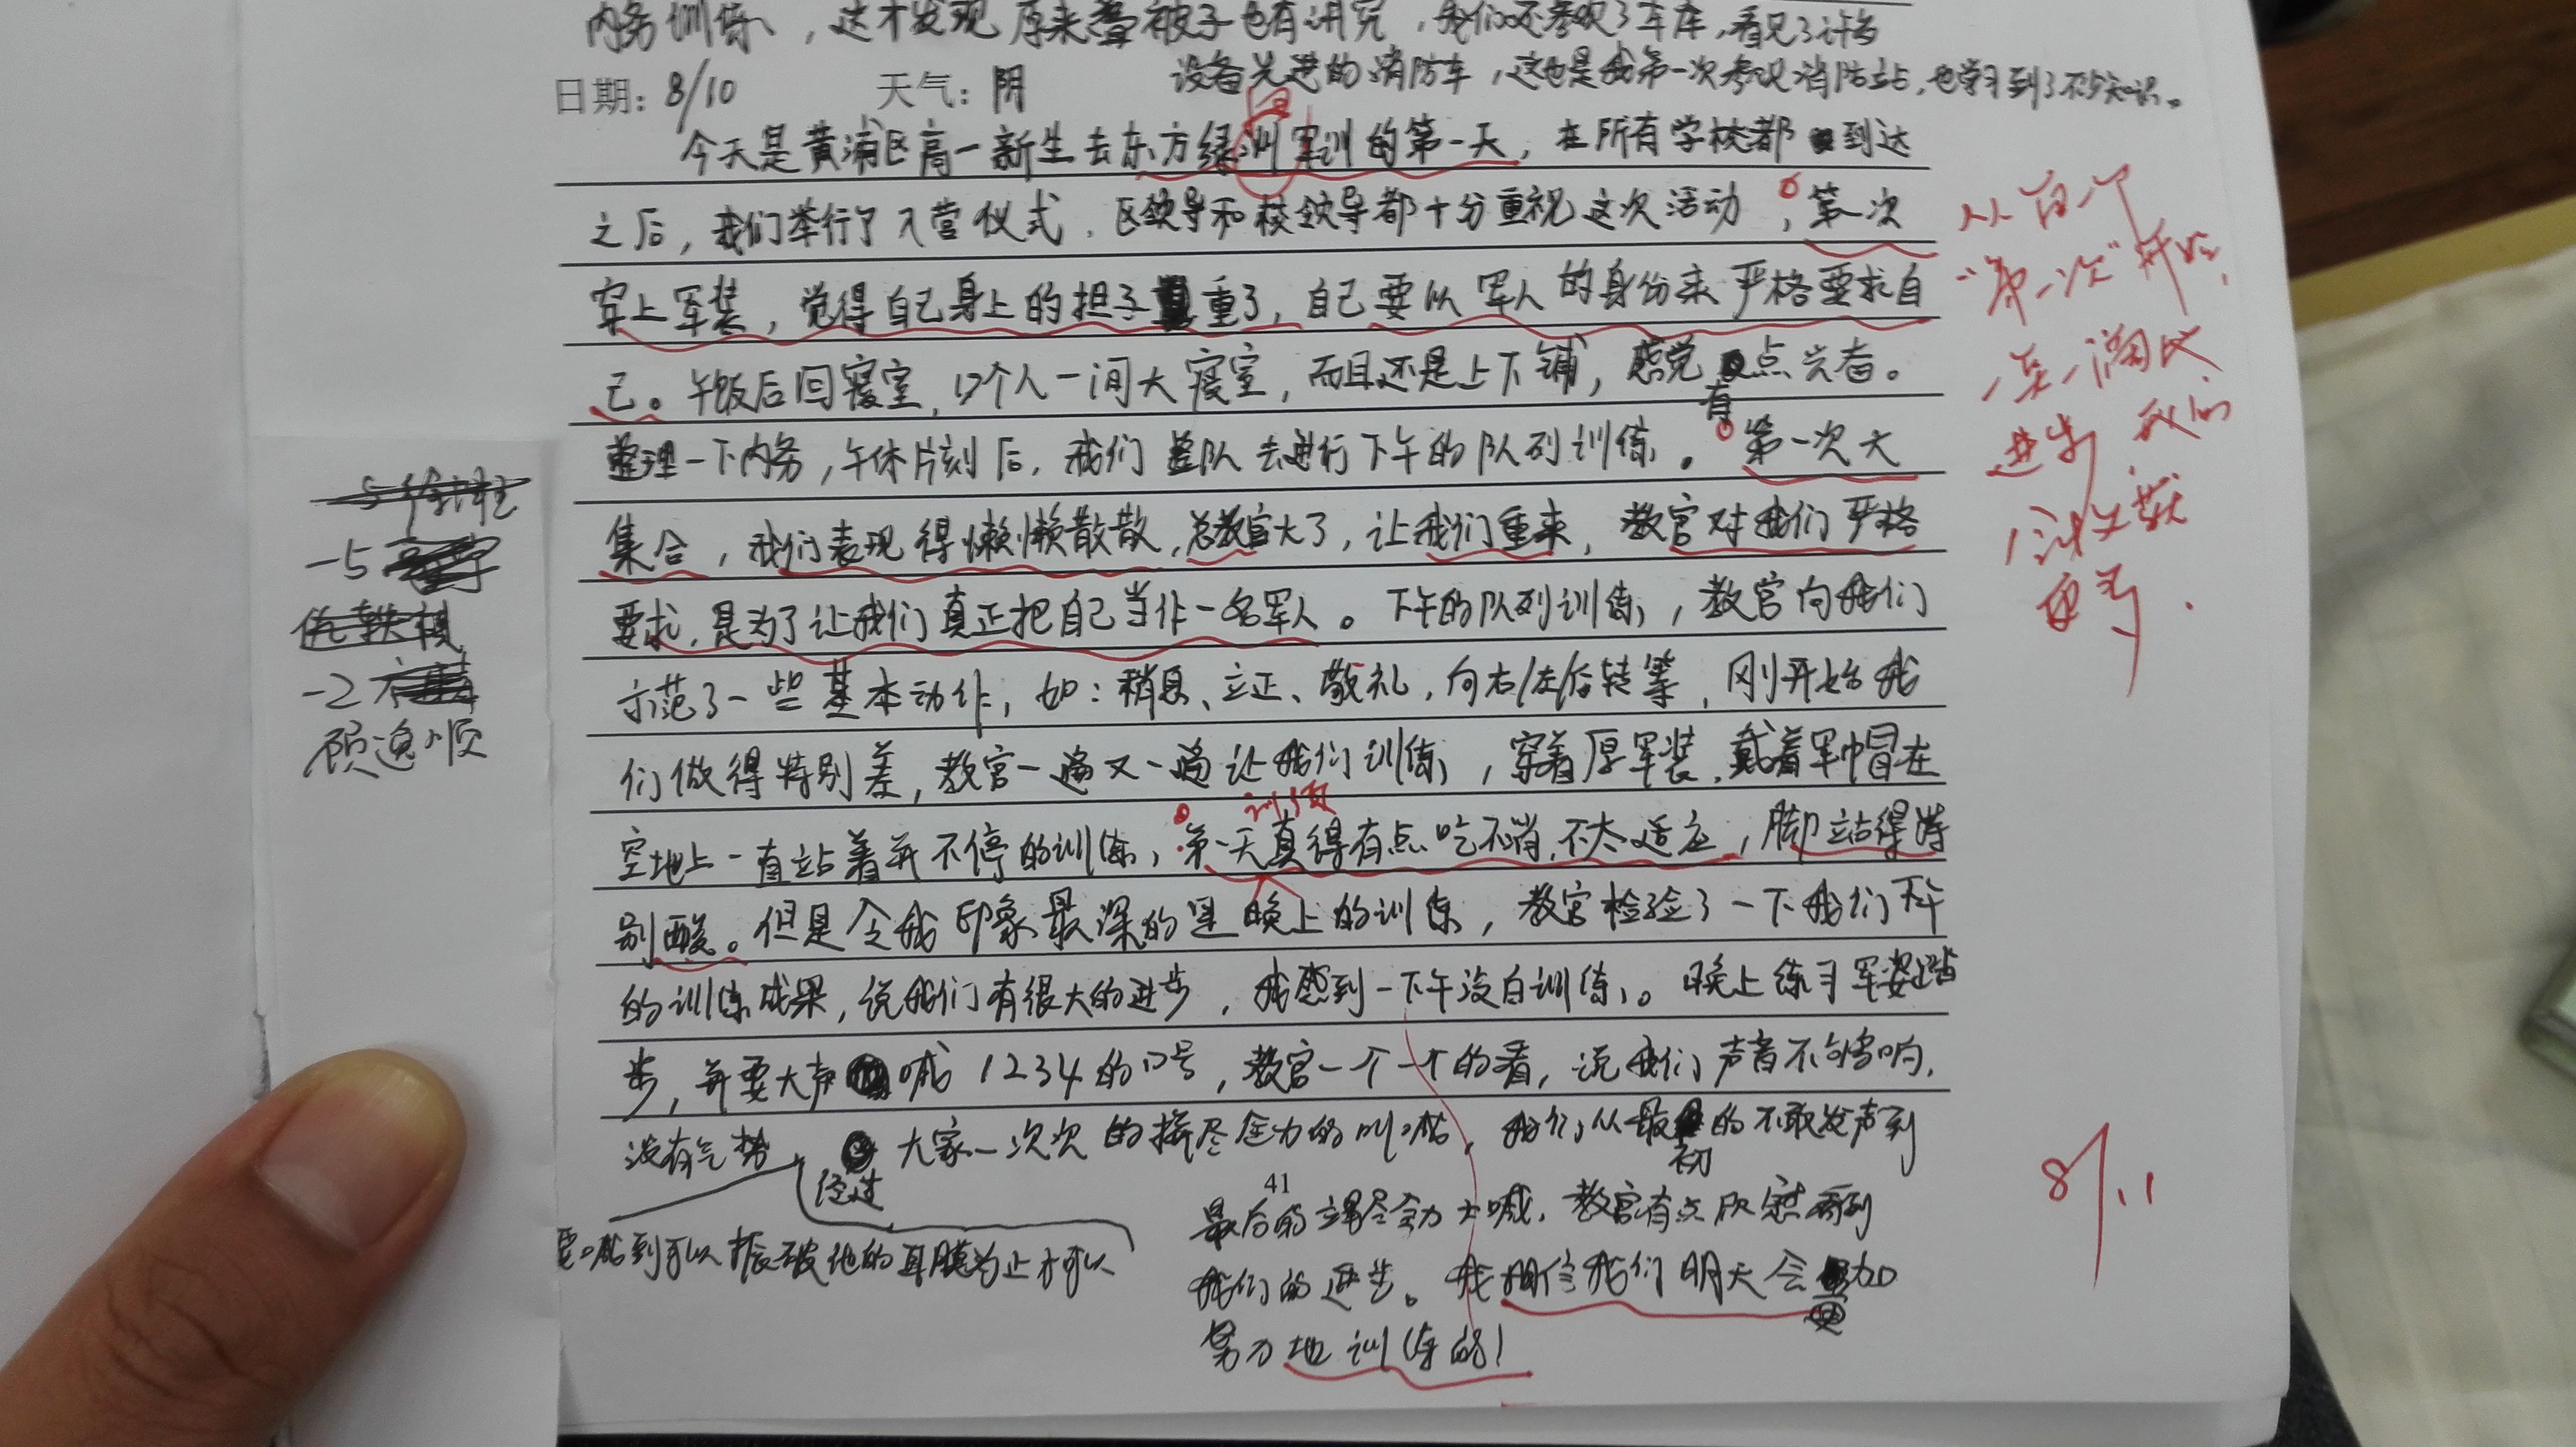 内务训练，这才发现原来叠被子也有讲究，我们还参观了车库，看见了许多
设备先进的消防车，这也是我第一次参观消防站，也学习到了不少知识。
日期：8/10 天气：阴
今天是黄浦区高一新生去东方绿洲军训的第一天，在所有学校都到达
之后，我们举行了入营仪式，区领导和校领导都十分重视这次活动，第一次
穿上军装，觉得自己身上的担子重了，自己要以军人的身份来严格要求自
己。午饭后回寝室，17个人一间大寝室，而且还是上下铺，感觉有点兴奋。
整理一下内务，午休片刻后，我们整队去进行下午的队列训练。第一次大
集合，我们表现得懒懒散散，总教官火了，让我们重来，教官对我们严格
要求，是为了让我们真正把自己当作一名军人。下午的队列训练，教官向我们
示范了一些基本动作，如：稍息、立正、敬礼，向右/左/后转等，刚开始我
们做得特别差，教官一遍又一遍让我们训练，穿着厚军装，戴着军帽在
空地上一直站着并不停的训练，第一天真得有点吃不消，不太适应，脚站得特
训练
别酸。但是令我印象最深的是晚上的训练，教官检验了一下我们下午
的训练成果，说我们有很大的进步，我感到一下午没白训练。晚上练习军姿踏
步，并要大声喊1234的口号，教官一个一个的看，说我们声音不够响，
没有气势，要喊到可以振破他的耳膜为止才可以
经过大家一次次的竭尽全力的叫喊，我们从最初的不敢发声到
41
最后的竭尽全力大喊，教官有点欣慰看到
我们的进步。我相信我们明天会更加
努力地训练的！
从每一个
“第一次”开始，
一点一滴的
进步，我们
会收获
更多.
8/11
-5
-5
-2
顾逸顺